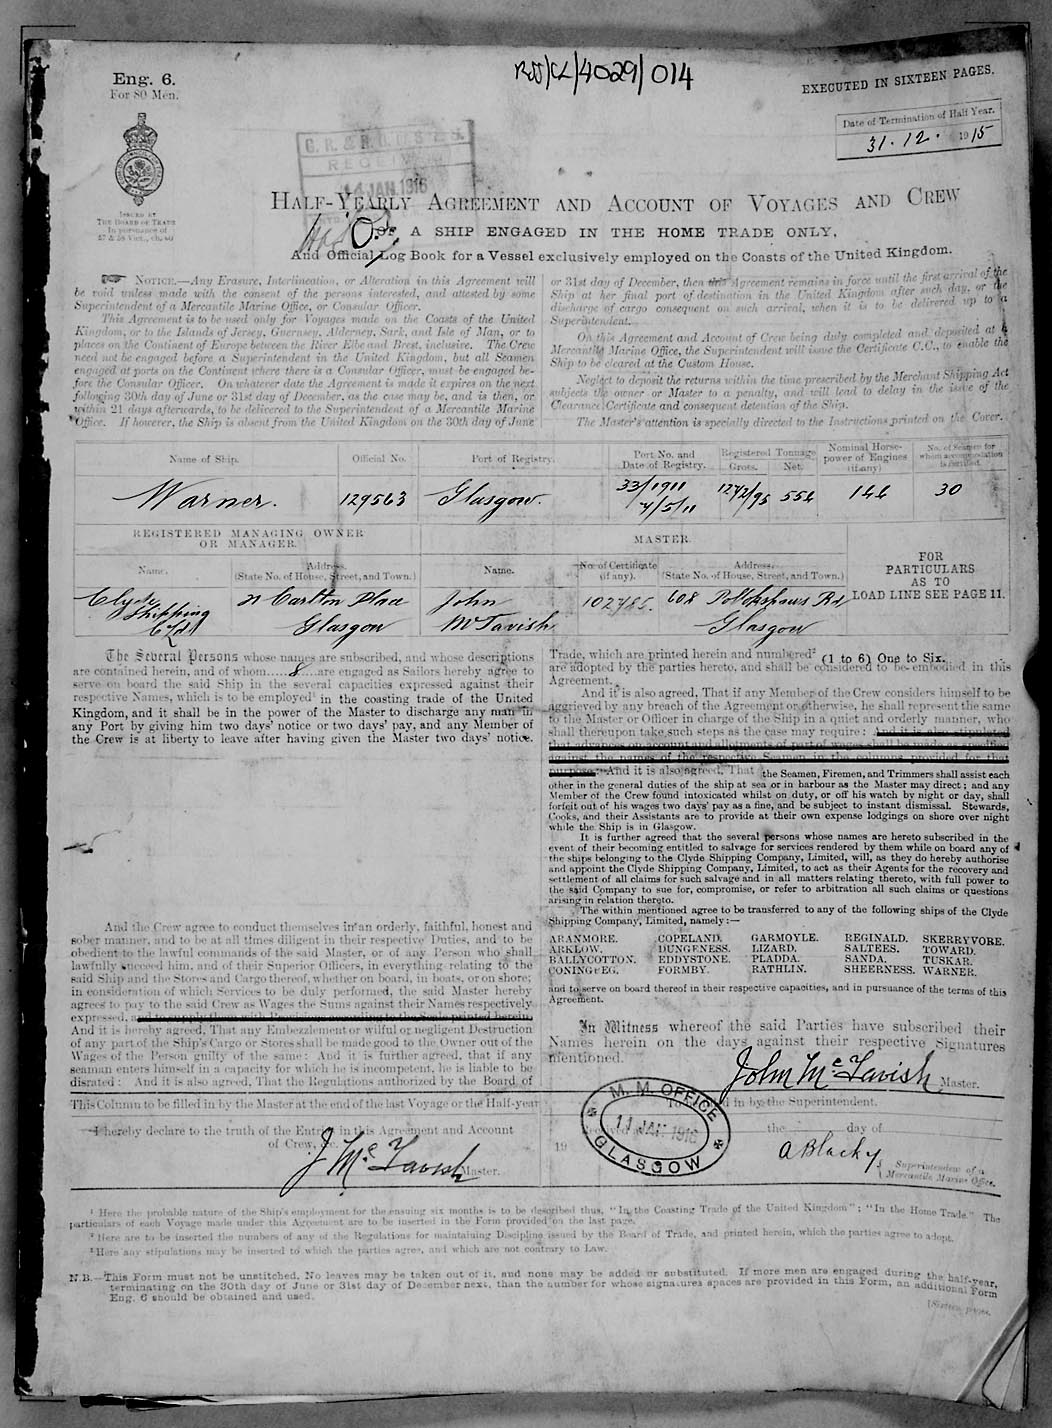 Eng. 6.
For 80 Men.
RSS/CL/4029/014
EXECUTED IN SIXTEEN PAGES.
Date of Termination of Half Year.
31.12. 1915
ISSUED BY
THE BOARD OF TRADE
In pursuance of
57 & 58 Vict., ch. 60
RECEIVED
14 JAN. 1916
HALF-YEARLY AGREEMENT AND ACCOUNT OF VOYAGES AND CREW
OF A SHIP ENGAGED IN THE HOME TRADE ONLY,
And Official Log Book for a Vessel exclusively employed on the Coasts of the United Kingdom.
NOTICE.—Any Erasure, Interlineation, or Alteration in this Agreement will
be void unless made with the consent of the persons interested, and attested by some
Superintendent of a Mercantile Marine Office, or Consular Officer.
This Agreement is to be used only for Voyages made on the Coasts of the United
Kingdom, or to the Islands of Jersey, Guernsey, Alderney, Sark, and Isle of Man, or to
places on the Continent of Europe between the River Elbe and Brest, inclusive. The Crew
need not be engaged before a Superintendent in the United Kingdom, but all Seamen
engaged at ports on the Continent where there is a Consular Officer, must be engaged be-
fore the Consular Officer. On whatever date the Agreement is made it expires on the next
following 30th day of June or 31st day of December, as the case may be, and is then, or
within 21 days afterwards, to be delivered to the Superintendent of a Mercantile Marine
Office. If however, the Ship is absent from the United Kingdom on the 30th day of June
or 31st day of December, then this Agreement remains in force until the first arrival of the
Ship at her final port of destination in the United Kingdom after such day, or the
discharge of cargo consequent on such arrival, when it is to be delivered up to a
Superintendent.
On this Agreement and Account of Crew being duly completed and deposited at a
Mercantile Marine Office, the Superintendent will issue the Certificate C.C., to enable the
Ship to be cleared at the Custom House.
Neglect to deposit the returns within the time prescribed by the Merchant Shipping Act
subjects the owner or Master to a penalty, and will lead to delay in the issue of the
Clearance Certificate and consequent detention of the Ship.
The Master's attention is specially directed to the Instructions printed on the Cover.
Name of Ship. Official No. Port of Registry. Port No. and Date of Registry. Registered Tonnage Gross. Net. Nominal Horse-power of Engines (if any) No. of Seamen for whom accommodation is certified.
Warner. 129563 Glasgow. 33/1911 4/5/11 1272/95 554 144 30
REGISTERED MANAGING OWNER
OR MANAGER.
MASTER
Name. Address. (State No. of House, Street, and Town.) Name. No. of Certificate (if any). Address. (State No. of House, Street, and Town.)
FOR
PARTICULARS
AS TO
LOAD LINE SEE PAGE 11.
Clyde Shipping Co Ld 21 Carlton Place Glasgow John McTavish 102785. 608 Pollokshaws Rd Glasgow
The Several Persons whose names are subscribed, and whose descriptions
are contained herein, and of whom.....8....are engaged as Sailors hereby agree to
serve on board the said Ship in the several capacities expressed against their
respective Names, which is to be employed¹ in the coasting trade of the United
Kingdom, and it shall be in the power of the Master to discharge any man in
any Port by giving him two days' notice or two days' pay, and any Member of
the Crew is at liberty to leave after having given the Master two days' notice.
And the Crew agree to conduct themselves in an orderly, faithful, honest and
sober manner, and to be at all times diligent in their respective Duties, and to be
obedient to the lawful commands of the said Master, or of any Person who shall
lawfully succeed him, and of their Superior Officers, in everything relating to the
said Ship and the Stores and Cargo thereof, whether on board, in boats, or on shore;
in consideration of which Services to be duly performed, the said Master hereby
agrees to pay to the said Crew as Wages the Sums against their Names respectively
expressed, and to supply them with Provisions according to the Scale printed herein.
And it is hereby agreed, That any Embezzlement or wilful or negligent Destruction
of any part of the Ship's Cargo or Stores shall be made good to the Owner out of the
Wages of the Person guilty of the same: And it is further agreed, that if any
seaman enters himself in a capacity for which he is incompetent, he is liable to be
disrated: And it is also agreed, That the Regulations authorized by the Board of
Trade, which are printed herein and numbered² (1 to 6) One to Six.
are adopted by the parties hereto, and shall be considered to be embodied in this
Agreement.
And it is also agreed, That if any Member of the Crew considers himself to be
aggrieved by any breach of the Agreement or otherwise, he shall represent the same
to the Master or Officer in charge of the Ship in a quiet and orderly manner, who
shall thereupon take such steps as the case may require: And it is also stipulated
that advances on account and allotments of part of wages shall be made as specified
against the names of the respective Seamen in the columns provided for that
purpose. And it is also agreed, That the Seamen, Firemen, and Trimmers shall assist each
other in the general duties of the ship at sea or in harbour as the Master may direct; and any
Member of the Crew found intoxicated whilst on duty, or off his watch by night or day, shall
forfeit out of his wages two days' pay as a fine, and be subject to instant dismissal. Stewards,
Cooks, and their Assistants are to provide at their own expense lodgings on shore over night
while the Ship is in Glasgow.
It is further agreed that the several persons whose names are hereto subscribed in the
event of their becoming entitled to salvage for services rendered by them while on board any of
the ships belonging to the Clyde Shipping Company, Limited, will, as they do hereby authorise
and appoint the Clyde Shipping Company, Limited, to act as their Agents for the recovery and
settlement of all claims for such salvage and in all matters relating thereto, with full power to
the said Company to sue for, compromise, or refer to arbitration all such claims or questions
arising in relation thereto.
The within mentioned agree to be transferred to any of the following ships of the Clyde
Shipping Company, Limited, namely:—
ARANMORE. COPELAND. GARMOYLE. REGINALD. SKERRYVORE.
ARKLOW. DUNGENESS. LIZARD. SALTEES. TOWARD.
BALLYCOTTON. EDDYSTONE. PLADDA. SANDA. TUSKAR.
CONINGBEG. FORMBY. RATHLIN. SHEERNESS. WARNER.
and to serve on board thereof in their respective capacities, and in pursuance of the terms of this
Agreement.
In Witness whereof the said Parties have subscribed their
Names herein on the days against their respective Signatures
mentioned.
John McTavish Master.
This Column to be filled in by the Master at the end of the last Voyage or the Half-year
I hereby declare to the truth of the Entries in this Agreement and Account
of Crew, &c.
J McTavish Master.
To be filled in by the Superintendent.
the day of
19
M. M. OFFICE
11 JAN 1916
GLASGOW
A Blacky
Superintendent of a
Mercantile Marine Office.
¹ Here the probable nature of the Ship's employment for the ensuing six months is to be described thus, "In the Coasting Trade of the United Kingdom"; "In the Home Trade." The
particulars of each Voyage made under this Agreement are to be inserted in the Form provided on the last page.
² Here are to be inserted the numbers of any of the Regulations for maintaining Discipline issued by the Board of Trade, and printed herein, which the parties agree to adopt.
³ Here any stipulations may be inserted to which the parties agree, and which are not contrary to Law.
N.B.—This Form must not be unstitched. No leaves may be taken out of it, and none may be added or substituted. If more men are engaged during the half-year,
terminating on the 30th day of June or 31st day of December next, than the number for whose signatures spaces are provided in this Form, an additional Form
Eng. 6 should be obtained and used.
[Sixteen pages.